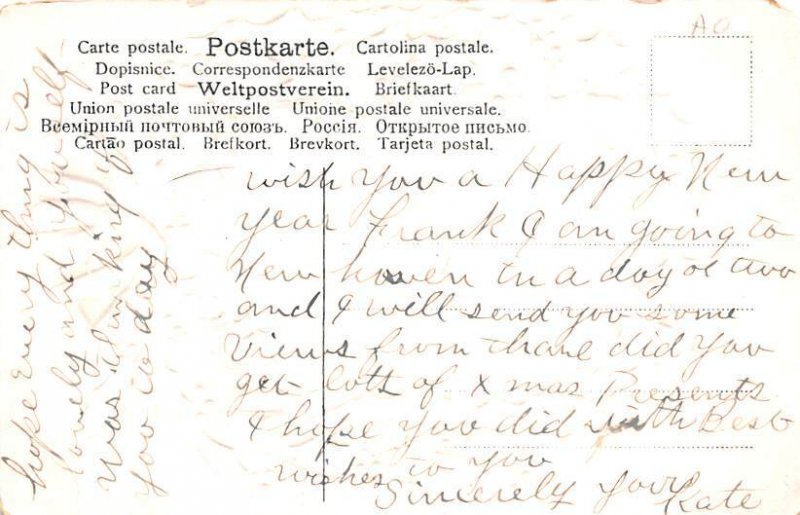 Carte postale. Postkarte. Cartolina postale.
Dopisnice. Correspondenzkarte Levelező-Lap.
Post card Weltpostverein. Briefkaart.
Union postale universelle Unione postale universale.
Всемірный почтовый союзъ. Россія. Открытое письмо.
Cartão postal. Brefkort. Brevkort. Tarjeta postal.
wish you a Happy New
year Frank I am going to
New haven in a day or two
and I will send you some
Views from thare did you
get lots of Xmas Presents
I hope you did with Best
wishes to you
Sincerely your
Kate
hope Every thing is
lovely and your self
was thinking of
you to day